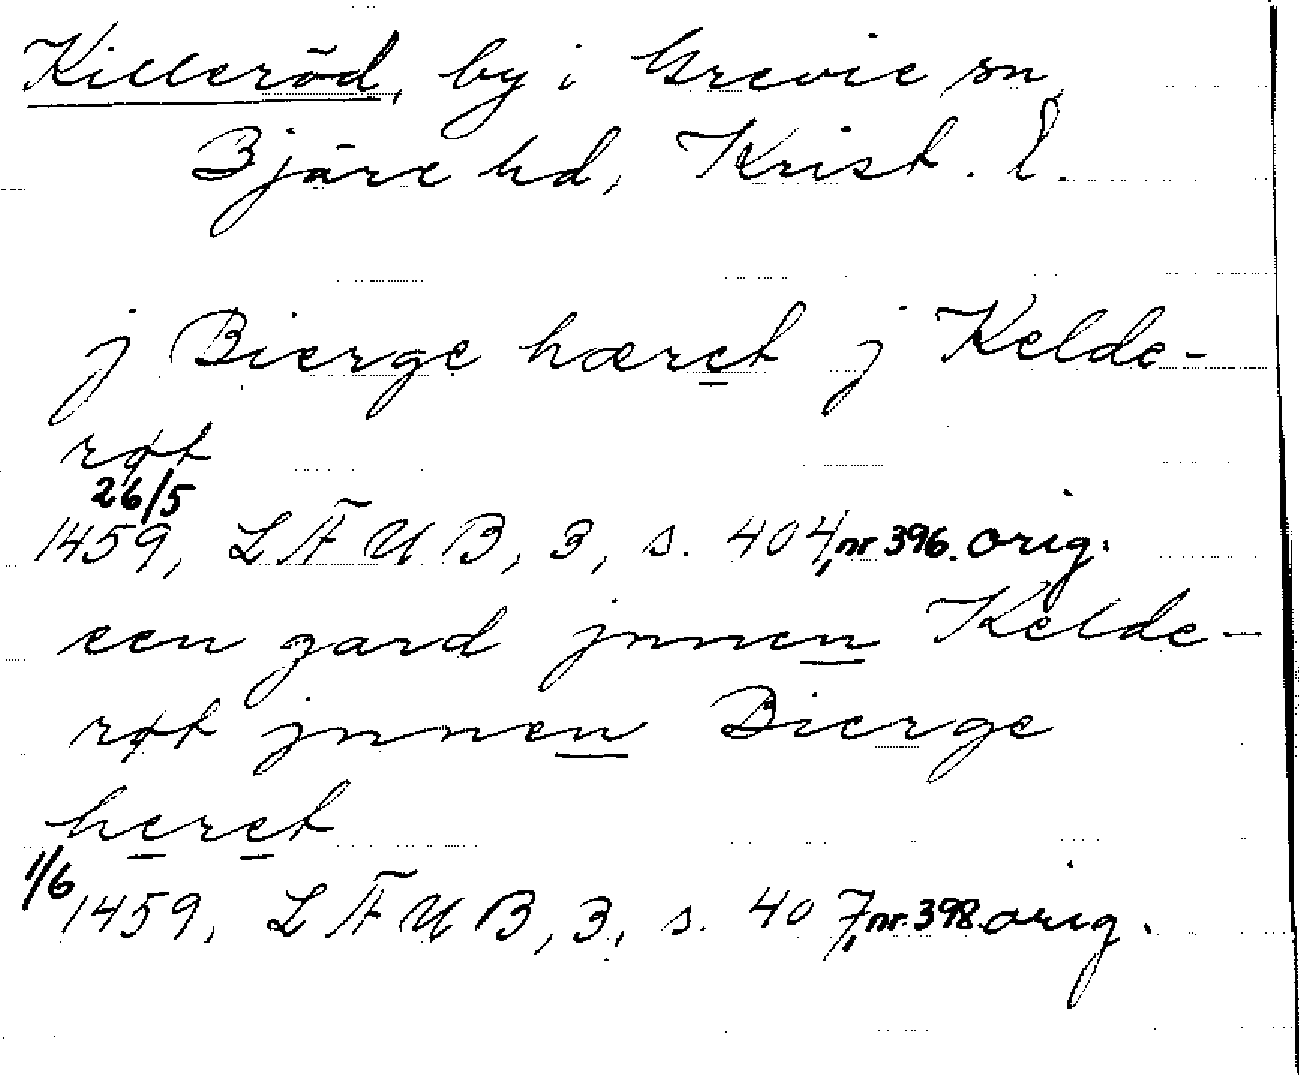 Killeröd, by i Grevie sn,
Bjäre hd, Krist. l.
j Bierge hæret j Kelde-
røt
26/5
1459, LÆUB, 3, s. 404, nr 396. orig.
een gard jnnen Kelde-
røt jnnen Bierge
heret
1/6 1459, LÆUB, 3, s. 407, nr. 398. orig.